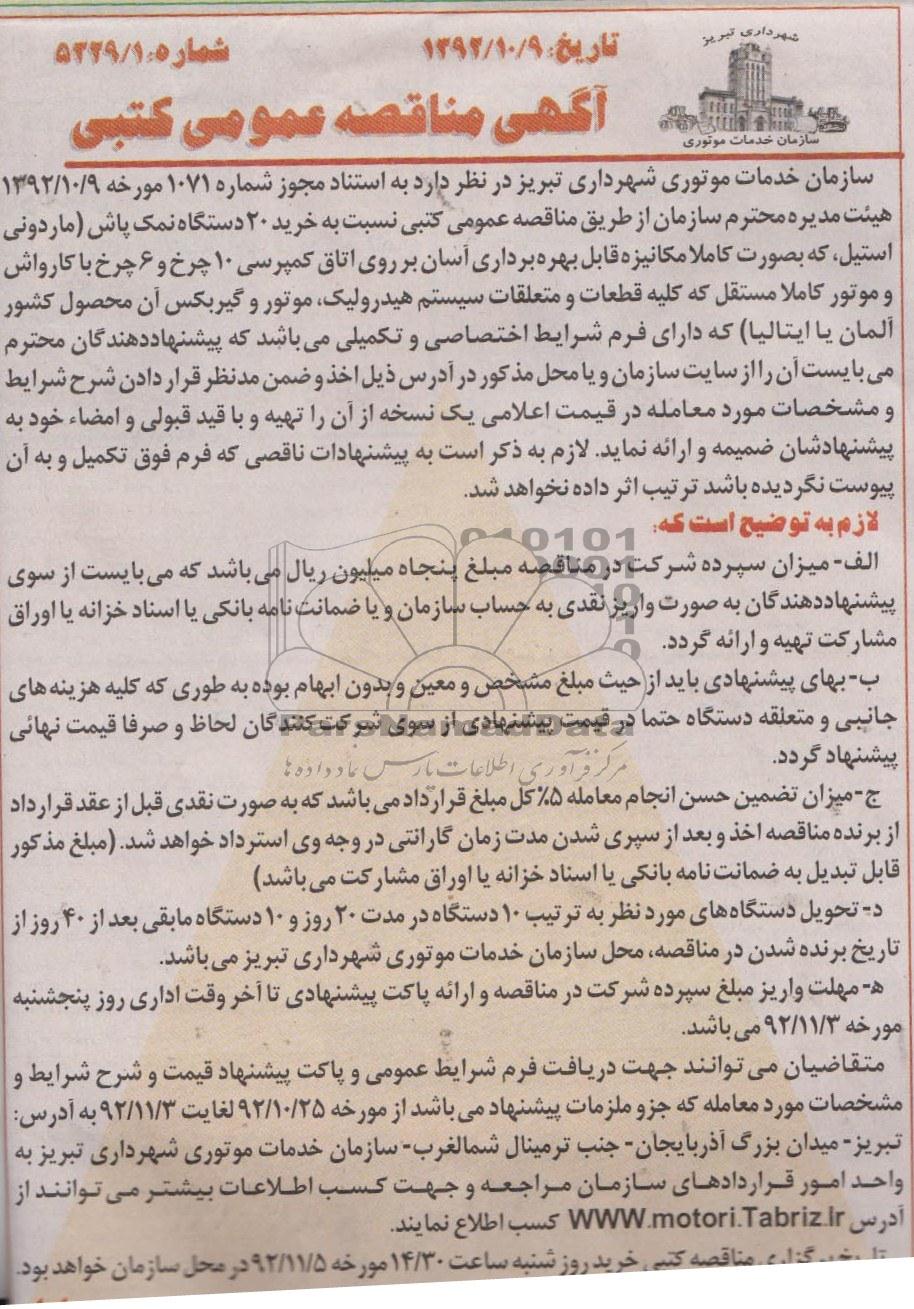 شهرداری تبریز
سازمان خدمات موتوری
تاریخ: ۱۳۹۲/۱۰/۹
شماره: ۵۲۲۹/۱
آگهی مناقصه عمومی کتبی
سازمان خدمات موتوری شهرداری تبریز در نظر دارد به استناد مجوز شماره ۱۰۷۱ مورخه ۱۳۹۲/۱۰/۹
هیئت مدیره محترم سازمان از طریق مناقصه عمومی کتبی نسبت به خرید ۲۰ دستگاه نمک پاش (ماردونی
استیل، که بصورت کاملا مکانیزه قابل بهره برداری آسان بر روی اتاق کمپرسی ۱۰ چرخ و ۶ چرخ با کارواش
و موتور کاملا مستقل که کلیه قطعات و متعلقات سیستم هیدرولیک، موتور و گیربکس آن محصول کشور
آلمان یا ایتالیا) که دارای فرم شرایط اختصاصی و تکمیلی می باشد که پیشنهاددهندگان محترم
می بایست آن را از سایت سازمان و یا محل مذکور در آدرس ذیل اخذ و ضمن مدنظر قرار دادن شرح شرایط
و مشخصات مورد معامله در قیمت اعلامی یک نسخه از آن را تهیه و با قید قبولی و امضاء خود به
پیشنهادشان ضمیمه و ارائه نماید. لازم به ذکر است به پیشنهادات ناقصی که فرم فوق تکمیل و به آن
پیوست نگردیده باشد ترتیب اثر داده نخواهد شد.
لازم به توضیح است که:
الف- میزان سپرده شرکت در مناقصه مبلغ پنجاه میلیون ریال می باشد که می بایست از سوی
پیشنهاددهندگان به صورت واریز نقدی به حساب سازمان و یا ضمانت نامه بانکی یا اسناد خزانه یا اوراق
مشارکت تهیه و ارائه گردد.
ب- بهای پیشنهادی باید از حیث مبلغ مشخص و معین و بدون ابهام بوده به طوری که کلیه هزینه های
جانبی و متعلقه دستگاه حتما در قیمت پیشنهادی از سوی شرکت کنندگان لحاظ و صرفا قیمت نهائی
ParsNamadData
پیشنهاد گردد.
مرکز فرآوری اطلاعات پارس نماد داده ها
ج- میزان تضمین حسن انجام معامله ۵٪ کل مبلغ قرارداد می باشد که به صورت نقدی قبل از عقد قرارداد
از برنده مناقصه اخذ و بعد از سپری شدن مدت زمان گارانتی در وجه وی استرداد خواهد شد. (مبلغ مذکور
قابل تبدیل به ضمانت نامه بانکی یا اسناد خزانه یا اوراق مشارکت می باشد)
د- تحویل دستگاه های مورد نظر به ترتیب ۱۰ دستگاه در مدت ۲۰ روز و ۱۰ دستگاه مابقی بعد از ۴۰ روز از
تاریخ برنده شدن در مناقصه، محل سازمان خدمات موتوری شهرداری تبریز می باشد.
ه- مهلت واریز مبلغ سپرده شرکت در مناقصه و ارائه پاکت پیشنهادی تا آخر وقت اداری روز پنجشنبه
مورخه ۹۲/۱۱/۳ می باشد.
متقاضیان می توانند جهت دریافت فرم شرایط عمومی و پاکت پیشنهاد قیمت و شرح شرایط و
مشخصات مورد معامله که جزو ملزمات پیشنهاد می باشد از مورخه ۹۲/۱۰/۲۵ لغایت ۹۲/۱۱/۳ به آدرس:
تبریز- میدان بزرگ آذربایجان- جنب ترمینال شمالغرب- سازمان خدمات موتوری شهرداری تبریز به
واحد امور قراردادهای سازمان مراجعه و جهت کسب اطلاعات بیشتر می توانند از
آدرس WWW.motori.Tabriz.ir کسب اطلاع نمایند.
تاریخ برگزاری مناقصه کتبی خرید روز شنبه ساعت ۱۴/۳۰ مورخه ۹۲/۱۱/۵ در محل سازمان خواهد بود.